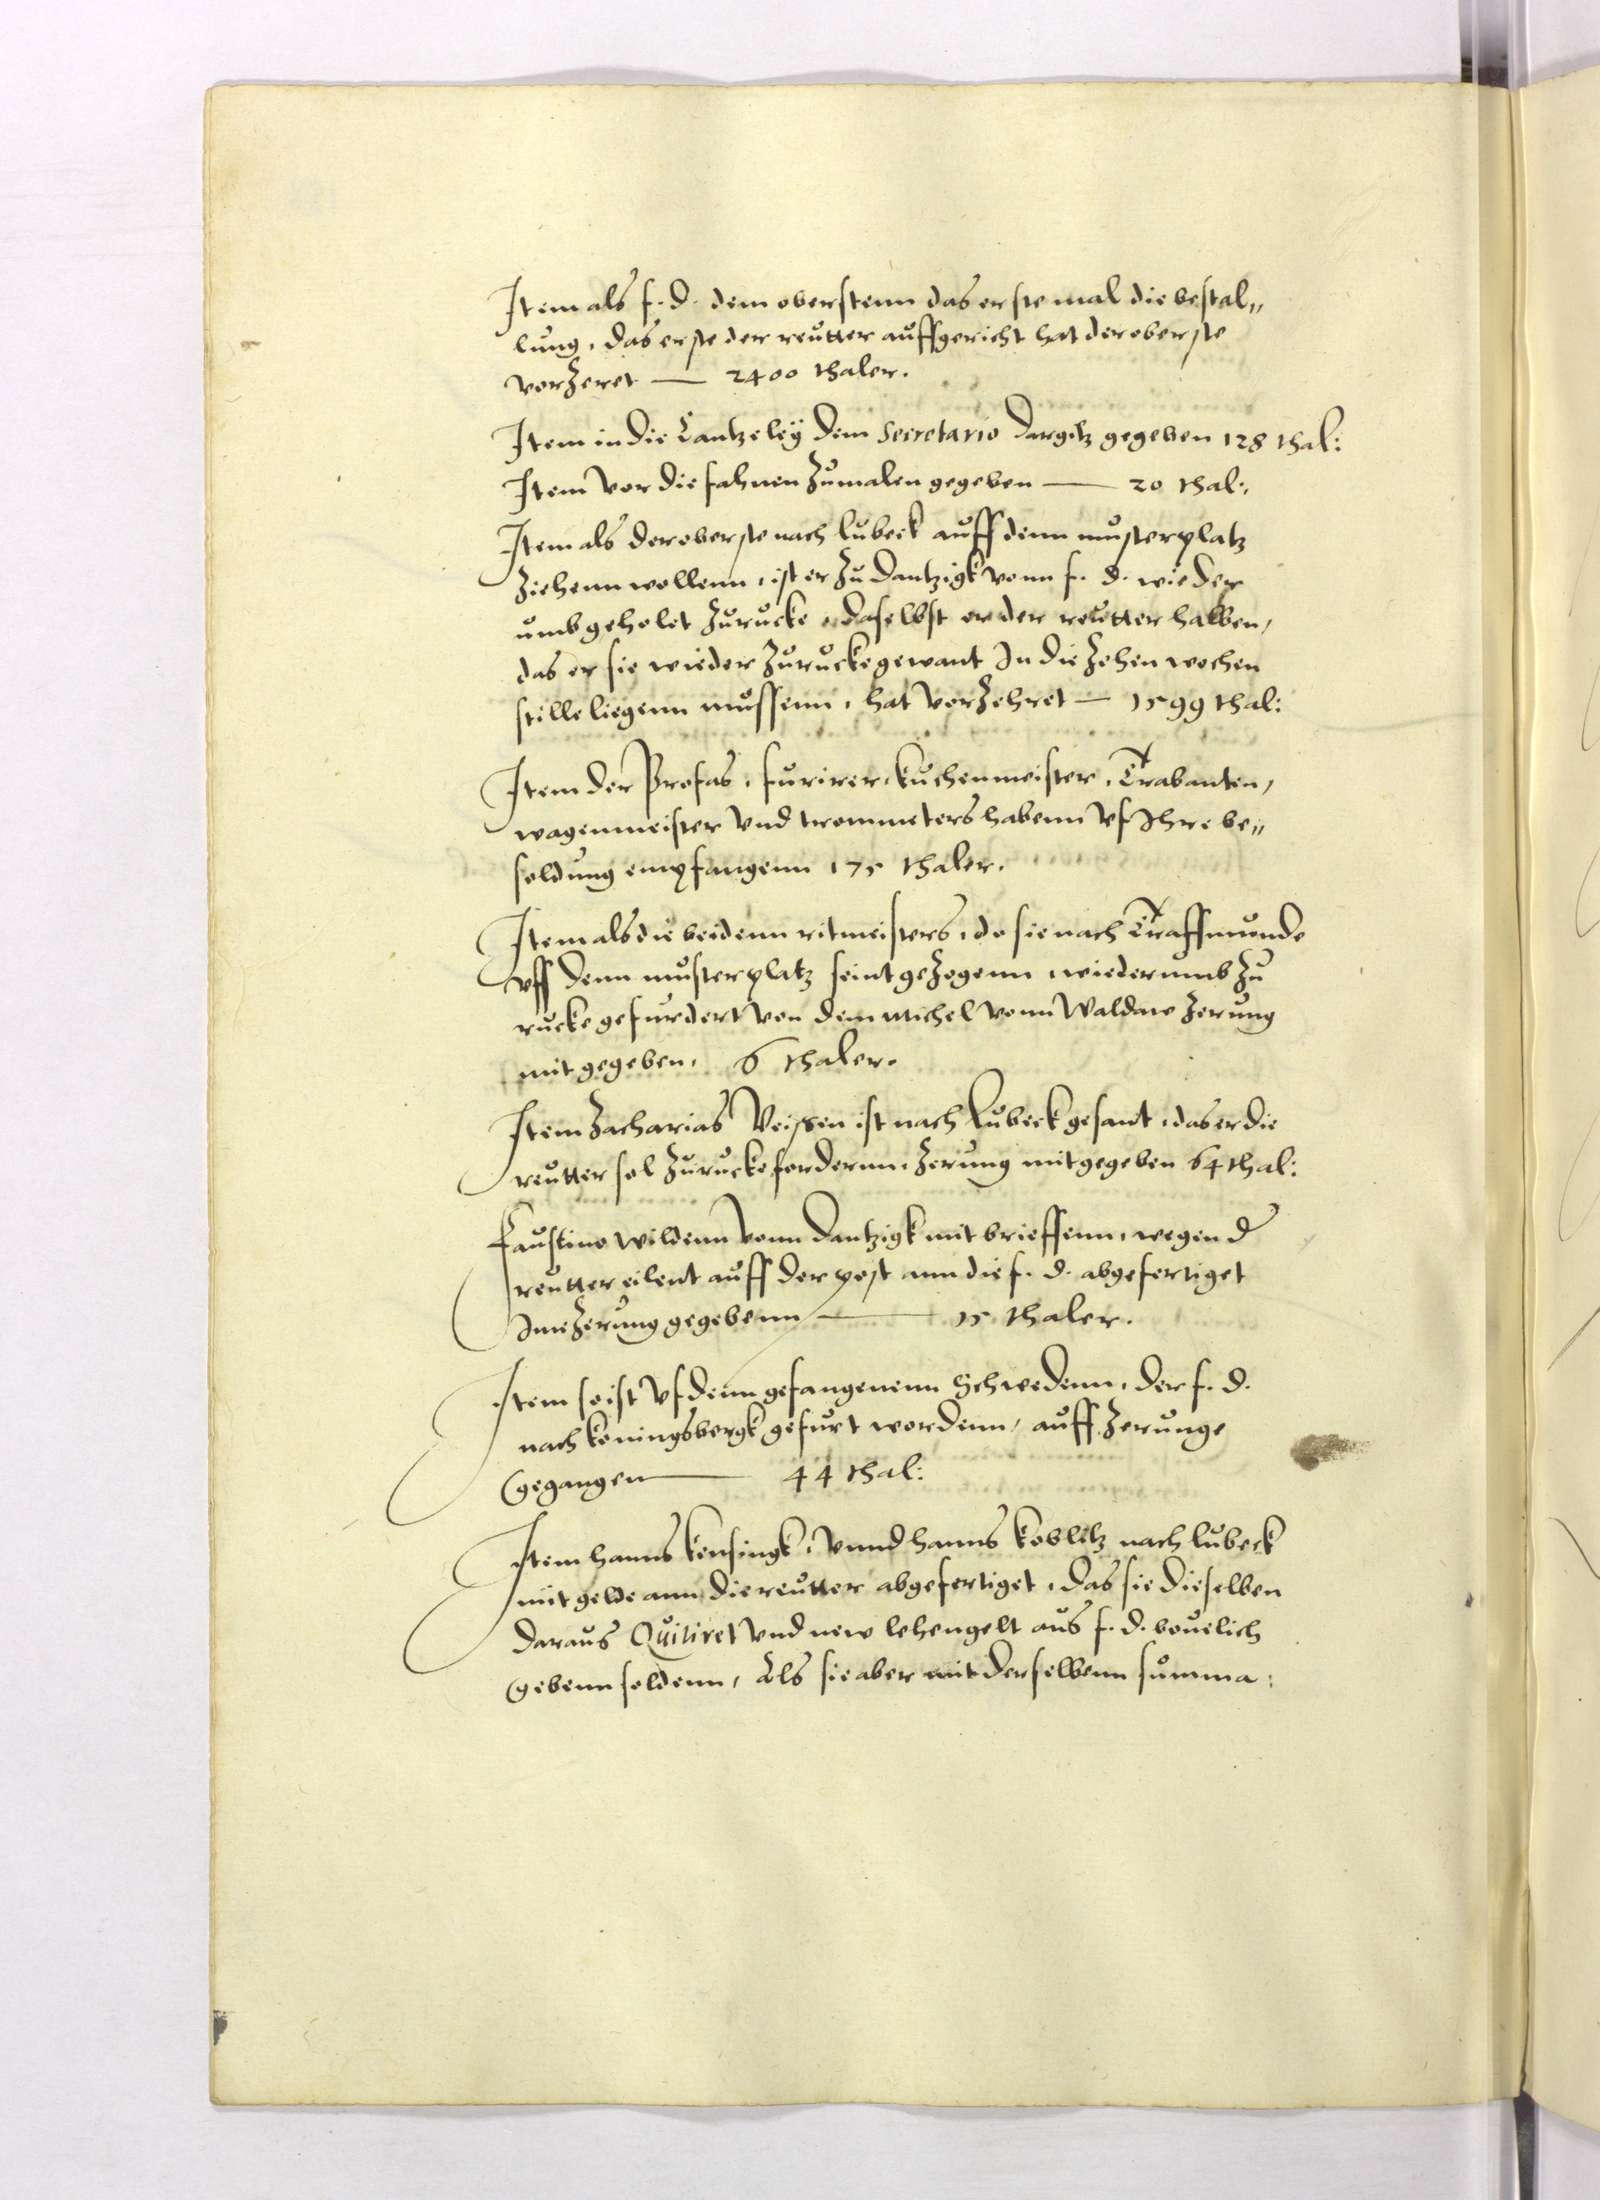 Item als f. d. dem oberstenn das erste mal die bestal„
lung, das erste der reutter auffgericht hat der oberste
vorzeret — 2400 thaler.
Item in die Cantzeleÿ dem Secretario dargitz gegeben 128 thal:
Item vor die fahnen zumalen gegeben — 20 thal:,
Item als der oberste nach Lubeck auff denn musterplatz
ziehenn wollenn, ist er zu Dantzigk vonn f. d. wieder
umb geholet zurucke, daselbst er der reutter halben,
das er sie wieder zurucke gewant In die zehen wochen
stille liegenn mussenn, hat vorzehret — 1599 thal:
Item der Profas, furirer, kuchenmeister, Trabanten,
wagenmeister vnd trommeters habenn vf Ihre be„
soldung empfangenn 175 thaler.
Item als die beidenn ritmeisters, do sie nach Traffmunde
vff denn musterplatz seint gezogenn, wiederumb zu
rucke gefurdert von dem Michel vonn Waldaw zerung
mit gegeben, 6 thaler.
Item Zacharias Veissen ist nach Lubeck gesant, das er die
reutter sol zurucke forderenn, zerung mitgegeben 64 thal:
Faustino Wildenn vonn Dantzigk mit brieffenn, wegen d
reutter eilent auff der post ann die f. d. abgefertiget
Ime zerung gegebenn — 15 thaler.
Item so ist vf denn gefangenenn Schwedenn, der f. d.
nach koningsbergk gefurt wordenn, auff zerunge
Gegangen — 44 thal:
Item hanns kensingk, vnnd hanns koblitz nach lubeck
mit gelde ann die reutter abgefertiget, das sie dieselben
daraus Quitiret vnd new lehengelt aus f. d. beuelich
Gebenn soldenn, Als sie aber mit derselbenn summa: